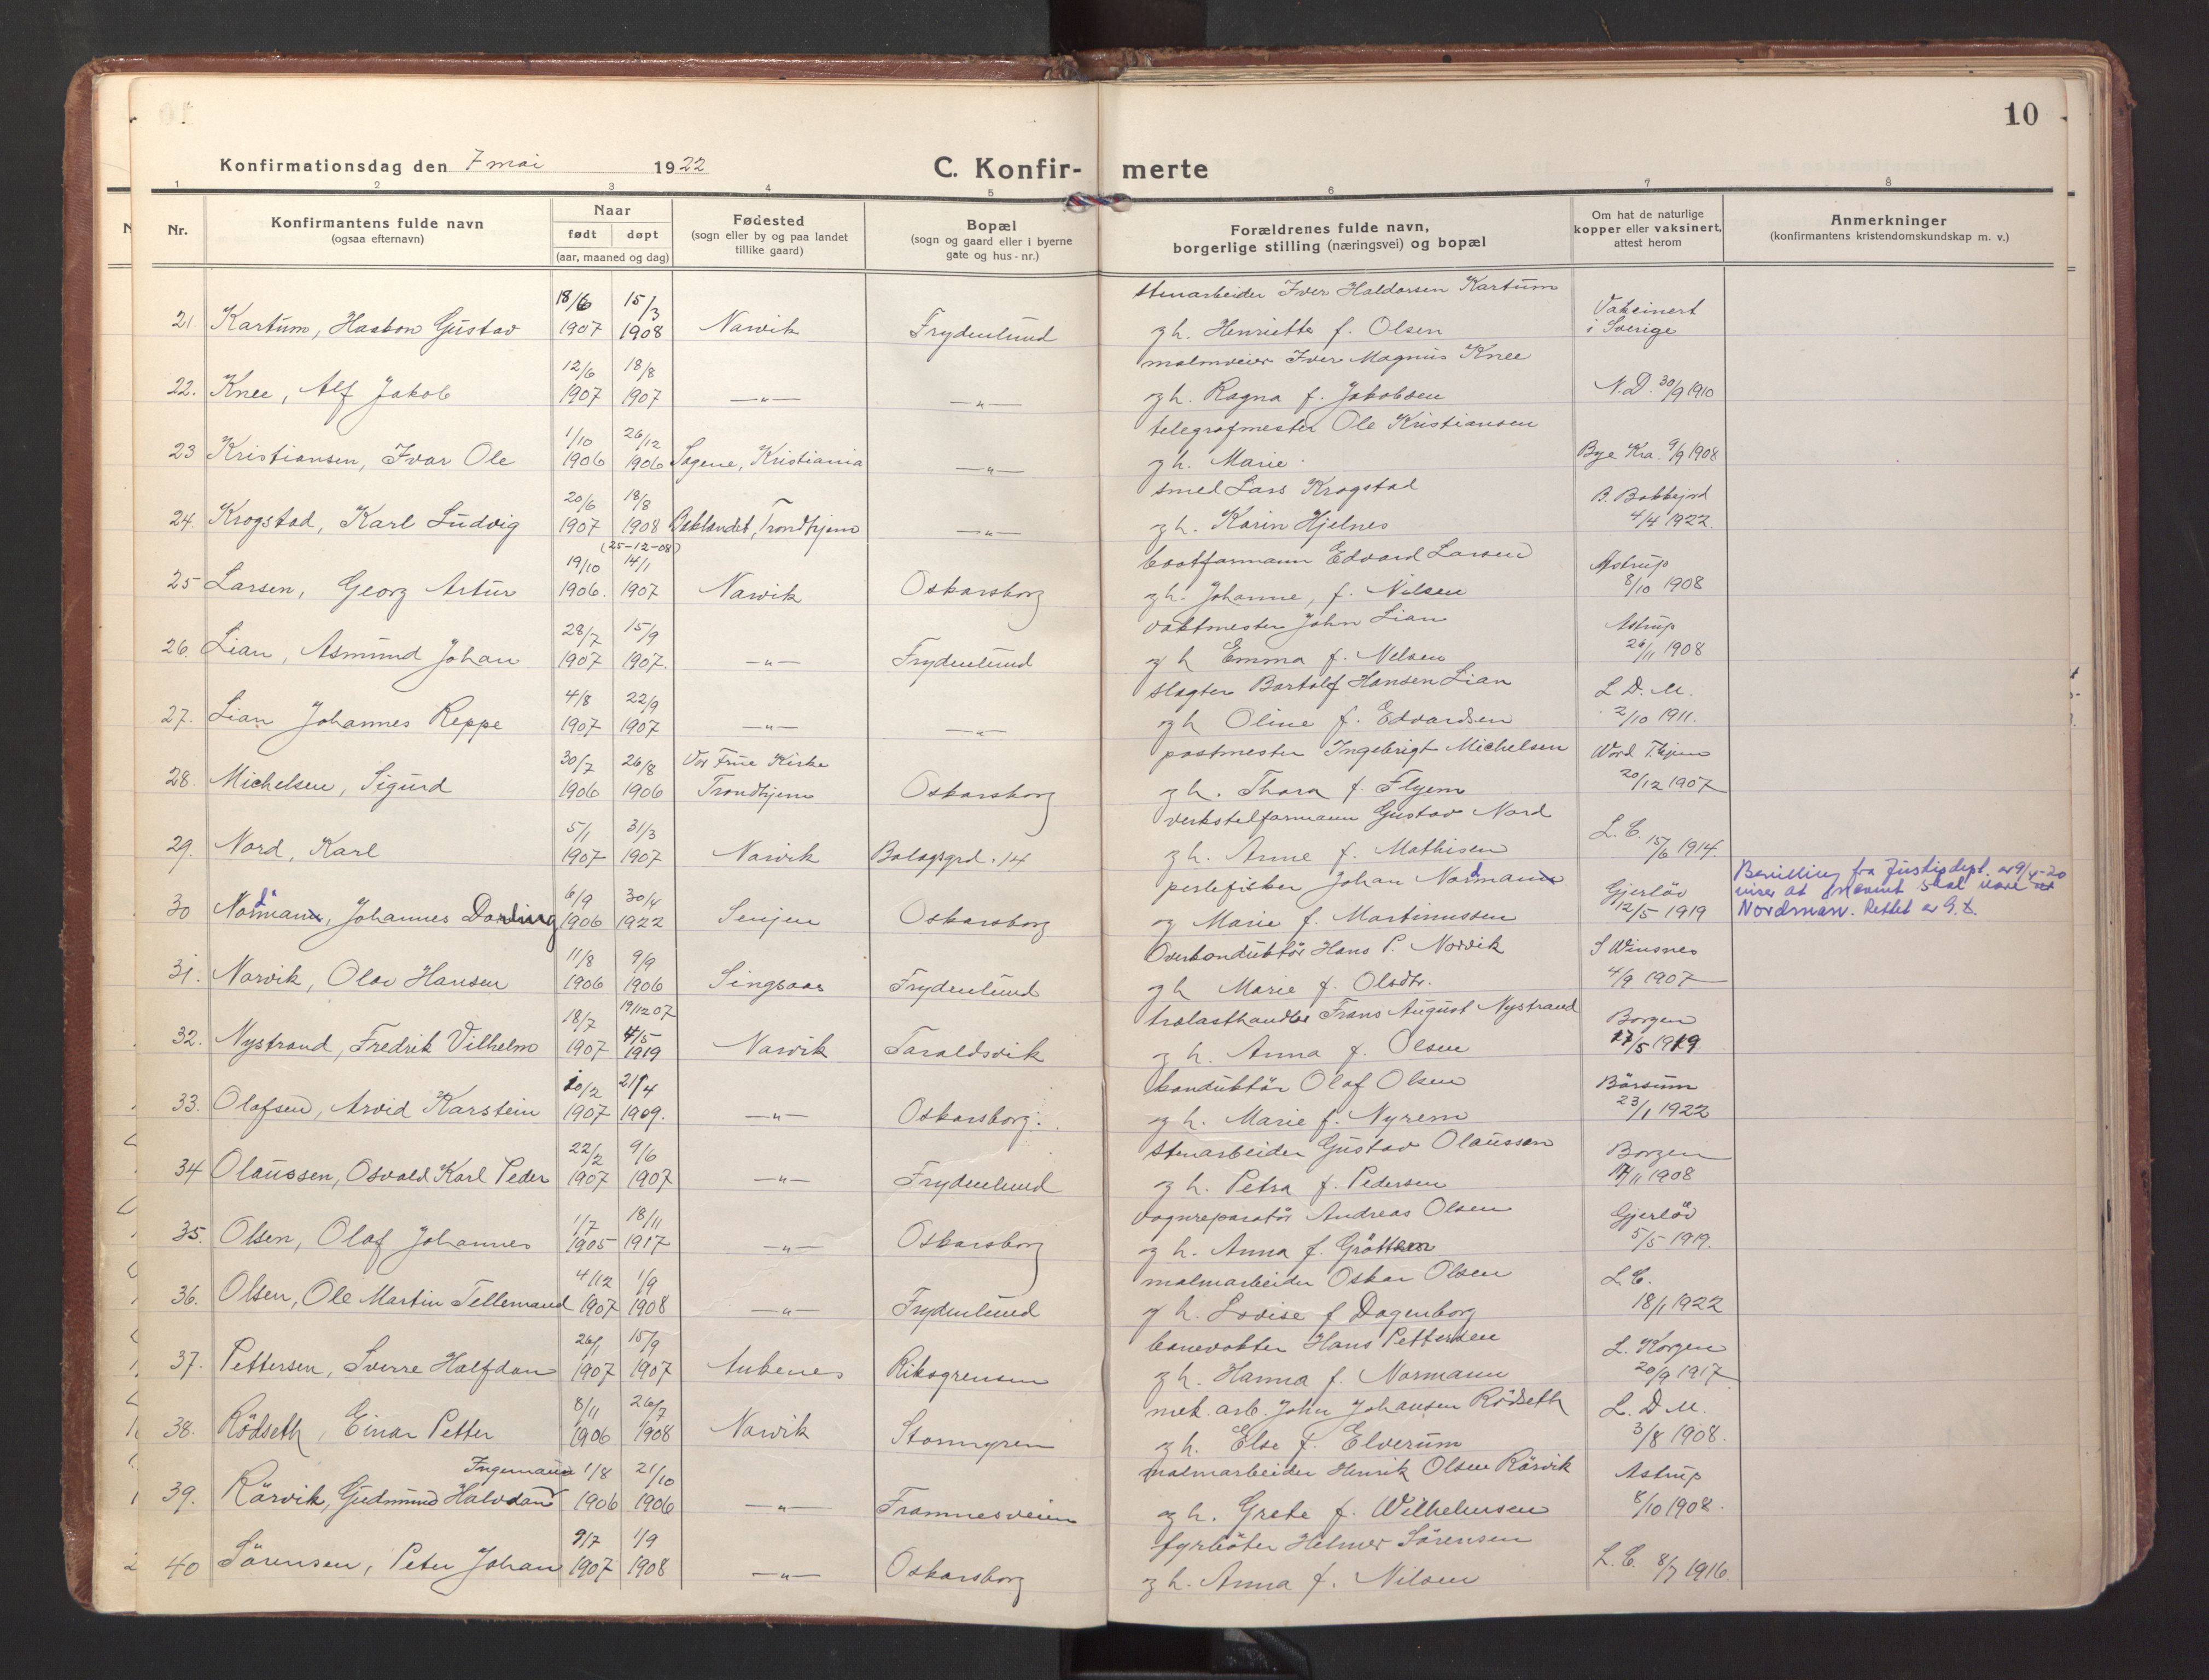 10
Konfirmationsdag den 7 mai 1922
C. Konfirmerte
1 2 3 4 5 6 7 8
Nr.
Konfirmantens fulde navn
(ogsaa efternavn)
Naar
født døpt
(aar, maaned og dag)
Fødested
(sogn eller by og paa landet
tillike gaard)
Bopæl
(sogn og gaard eller i byerne
gate og hus-nr.)
Forældrenes fulde navn,
borgerlige stilling (næringsvei) og bopæl
Om hat de naturlige
kopper eller vaksinert,
attest herom
Anmerkninger
(konfirmantens kristendomskundskap m. v.)
18/6 15/3 stenarbeider Iver Haldorsen Kartum Vaksinert
21. Kartum, Haakon Gustav 1907 1908 Narvik Frydenlund og h. Henriette f. Olsen i Sverige
12/6 18/8 malmveier Iver Magnus Knee
22. Knee, Alf Jakob 1907 1907 —"— —"— og h. Ragna f. Jakobsen N.D. 30/9 1910
1/10 26/12 telegrafmester Ole Kristiansen
23 Kristiansen, Ivar Ole 1906 1906 Sagene, Kristiania —"— og h. Marie. Bye Kra. 9/9 1908
20/6 18/8 smed Lars Krogstad B. Bakkejord
24. Krogstad, Karl Ludvig 1907 1908 Baklandet, Trondhjem —"— og h. Karin Hjelnes 4/4 1922.
(25-12-08)
19/10 14/1 bootformann Edvard Larsen Astrup
25 Larsen, Georg Artur 1906. 1907 Narvik Oskarsborg og h. Johanne, f. Nilsen 8/10 1908
28/7 15/9 vaktmester John Lian Astrup
26. Lian, Asmund Johan 1907 1907. —"— Frydenlund og h Emma f. Nelsen 26/11 1908
4/8 22/9 slagter Bartolf Hansen Lian L. D. M.
27. Lian Johannes Reppe 1907 1907 —"— —"— og h Oline f. Edvardsen 2/10 1911.
30/7 26/8 Vor Frue Kirke postmester Ingebrigt Michelsen Word Thjem
28. Michelsen, Sigurd 1906 1906 Trondhjem Oskarsborg og h. Thora f. Flyem 20/12 1907
5/1 31/3 verkstelformann Gustav Nord L. C. 15/6 1914.
29. Nord, Karl 1907 1907 Narvik Bolagsgrd. 14 og h. Anne f. Mathisen
6/9 30/4 perlefisker Johan Nordman Gjerløv Bevilling fra Justisdept. av 9/4-20
30 Nordman, Johannes Darling 1906 1922 Senjen Oskarsborg og Marie f. Martinussen 12/5 1919 viser at navnet skal være
Nordman. Rettet av G.S.
11/8 9/9 Overkonduktör Hans P. Norvik S Winsnes
31. Norvik, Olav Hansen 1906 1906 Singsaas Frydenlund og h Marie f. Olsdtr. 4/9 1907
18/7 19/12 07 trelasthandler Frans August Nystrand Borgen
32. Nystrand, Fredrik Vilhelm 1907 4/5 1919 Narvik Taraldsvik og h. Anna f. Olsen 17/5 1919.
10/2 21/4 konduktör Olaf Olsen Börsum
33. Olafsen, Arvid Karstein 1907 1909. —"— Oskarsborg. og h. Marie f. Nyrem 23/1 1922
22/2 9/6 stenarbeider Gustav Olaussen Borgen
34 Olaussen, Osvald Karl Peder 1907 1907 —"— Frydenlund og h. Petra f. Pedersen 17/11 1908
1/7 18/11 vognreparatör Andreas Olsen Gjerlöv
35. Olsen, Olaf Johannes 1905 1917 —"— Oskarsborg og h. Anna f. Gröttem 5/5 1919.
4/12 1/9 malmarbeider Oskar Olsen L. C.
36. Olsen, Ole Martin Tellemand 1907 1908 —"— Frydenlund og h. Lovise f Dagenborg 18/1 1922
26/1 15/9 banevokter Hans Pettersen L. Korgen
37. Pettersen, Sverre Halfdan 1907 1907 Ankenes Riksgrensen og h. Hanna f. Normann 20/9 1917
8/11 26/7 mek. arb. John Johansen Rödseth L. D M.
38. Rödseth, Einar Petter 1906 1908 Narvik Stormyren og h. Else f. Elverum 3/8 1908.
Ingemann 1/8 21/10 malmarbeider Henrik Olsen Rörvik Astrup
39. Rörvik, Gudmund Halvdan 1906 1906 —"— Framnesveien og h. Grete f. Wilhelmsen 8/10 1908.
9/7 1/9 fyrböter Helmer Sörensen
40 Sörensen, Peter Johan 1907 1908 —"— Oskarsborg og h. Anna f. Nilsen L. C. 8/7 1916.